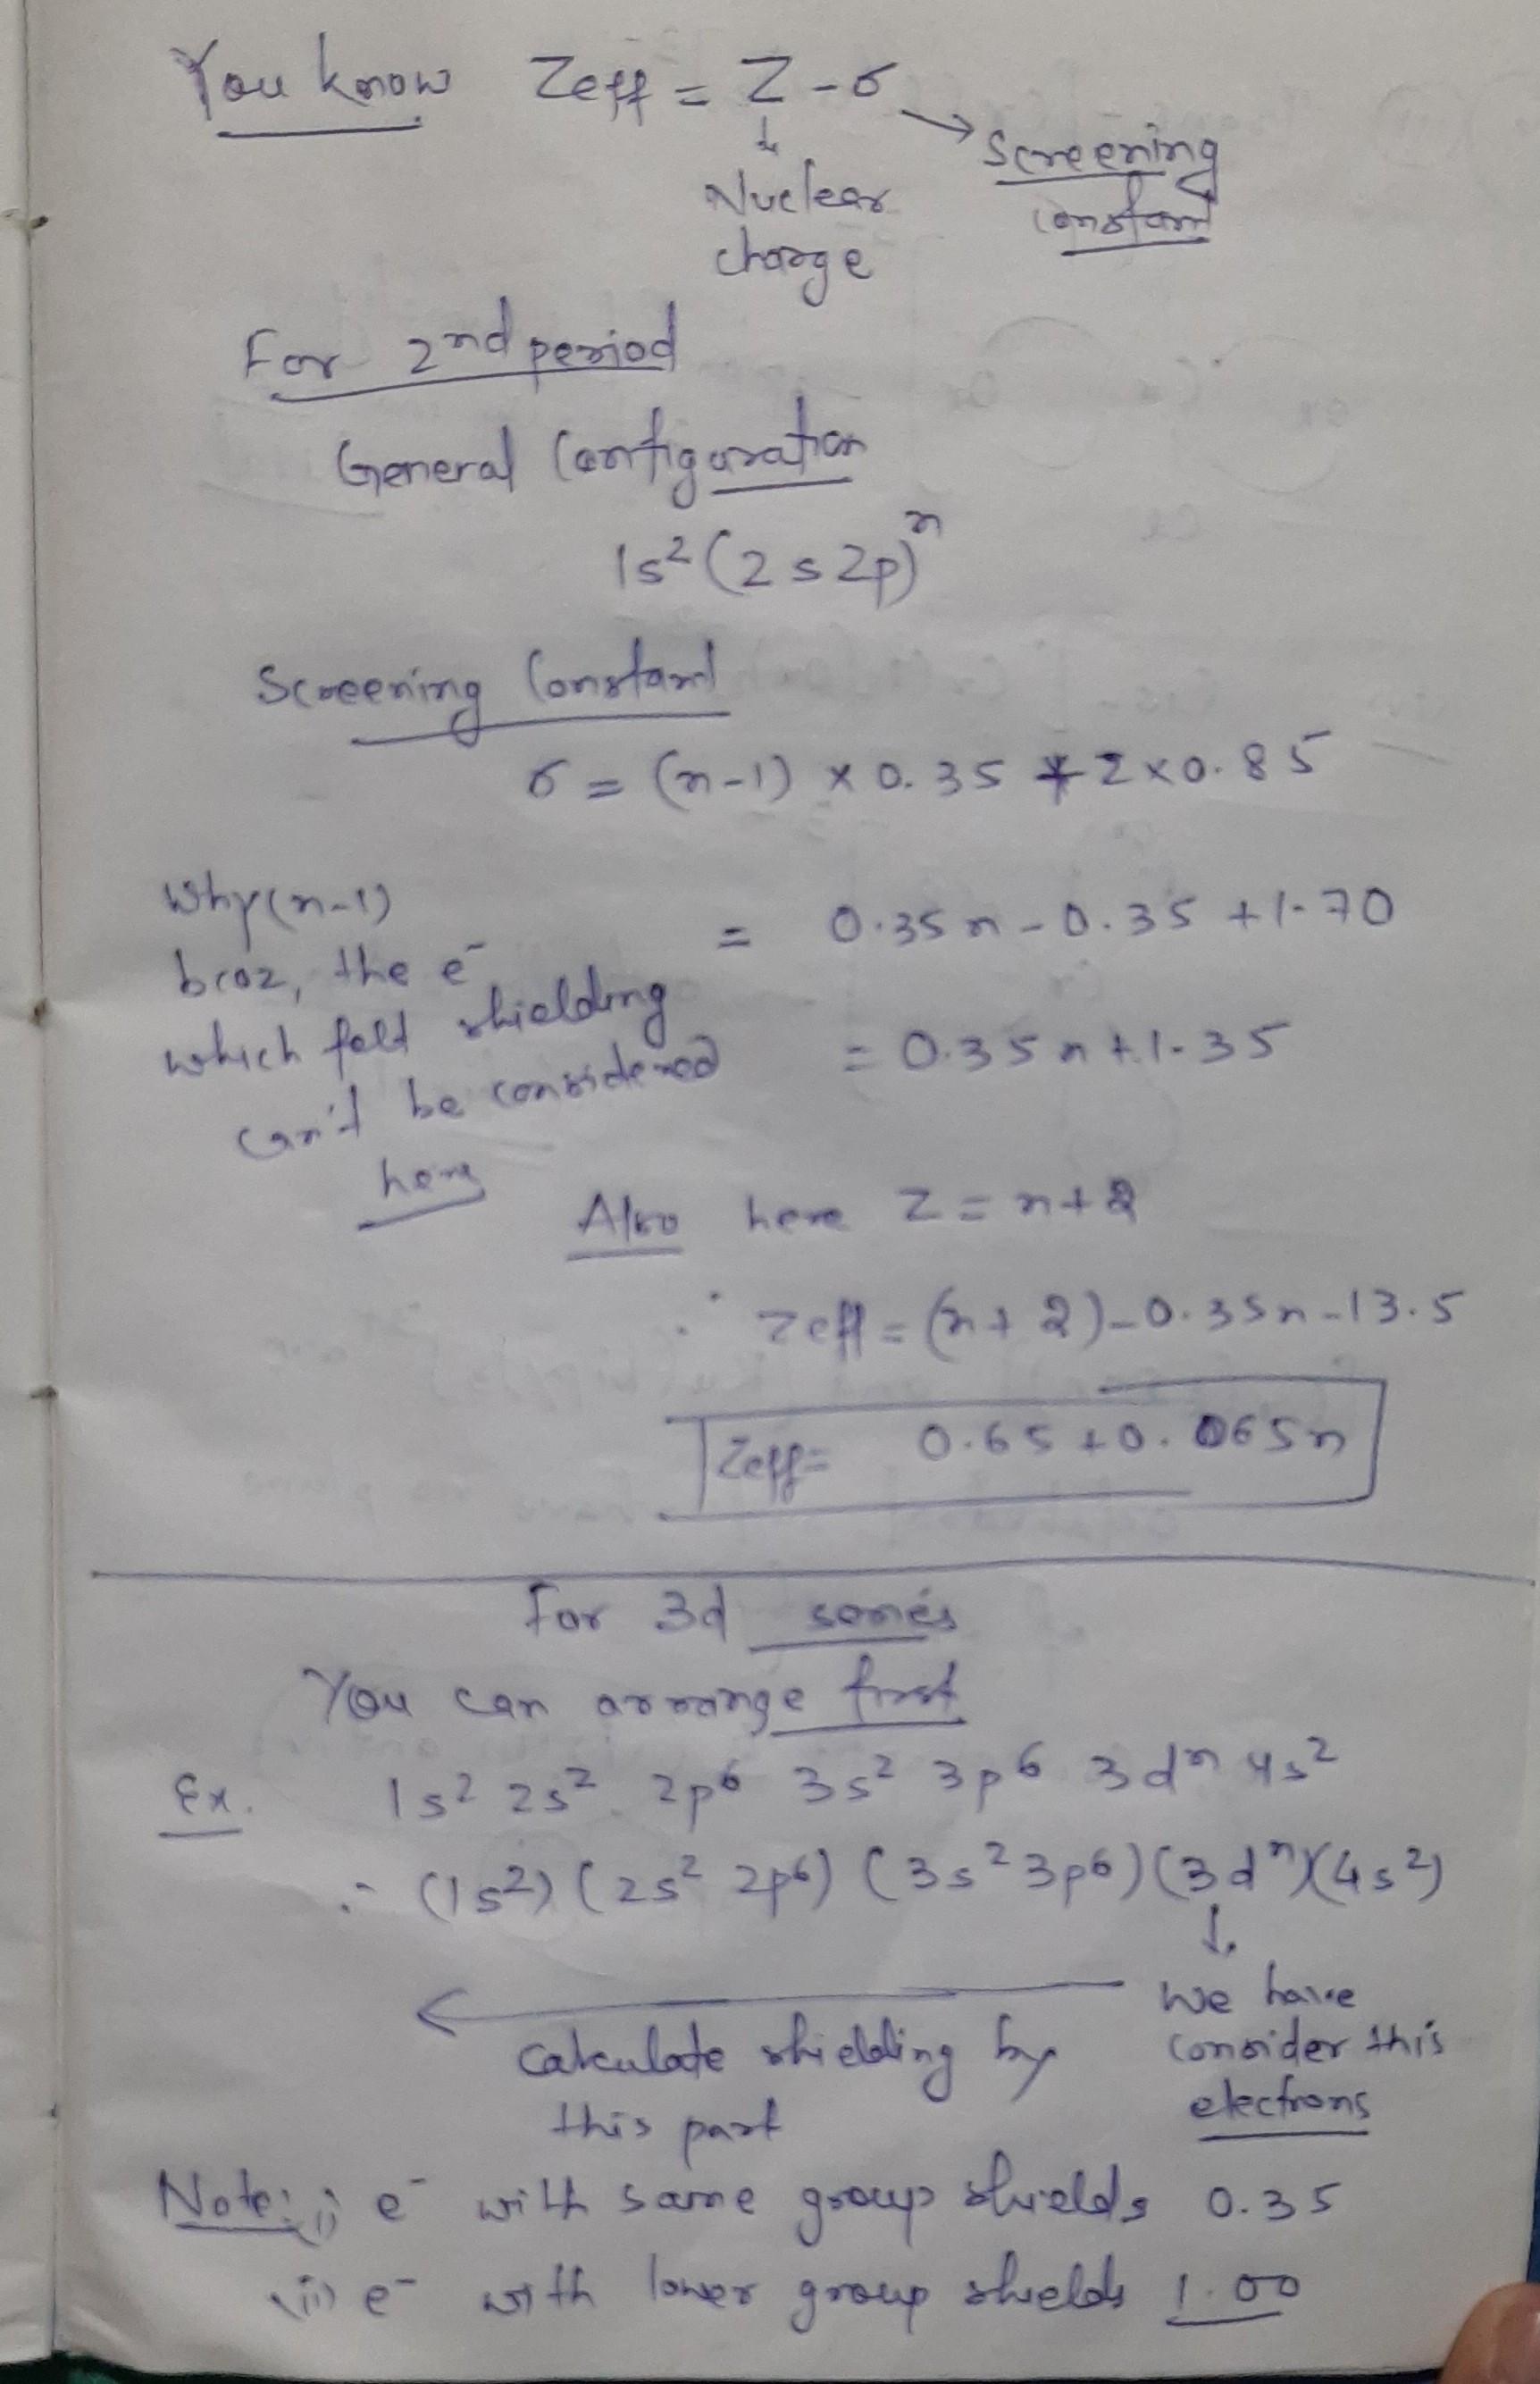 You know Zeff = Z - σ
→ Screening constant
↓
Nuclear charge
For 2nd period
General Configuration
1s² (2s 2p)ⁿ
Screening Constant
σ = (n-1) x 0.35 + 2 x 0.85
= 0.35n - 0.35 + 1.70
= 0.35n + 1.35
Why (n-1)
bcoz, the e⁻
which felt shielding
can't be considered
here
Also here Z = n + 2
∴ Zeff = (n + 2) - 0.35n - 13.5
Zeff = 0.65 + 0.065n
For 3d series
You can arrange first
Ex. 1s² 2s² 2p⁶ 3s² 3p⁶ 3dⁿ 4s²
∴ (1s²) (2s² 2p⁶) (3s² 3p⁶) (3dⁿ)(4s²)
↓
We have
consider this
electrons
←
calculate shielding by
this part
Note: (i) e⁻ with same group shields 0.35
(ii) e⁻ with lower group shields 1.00